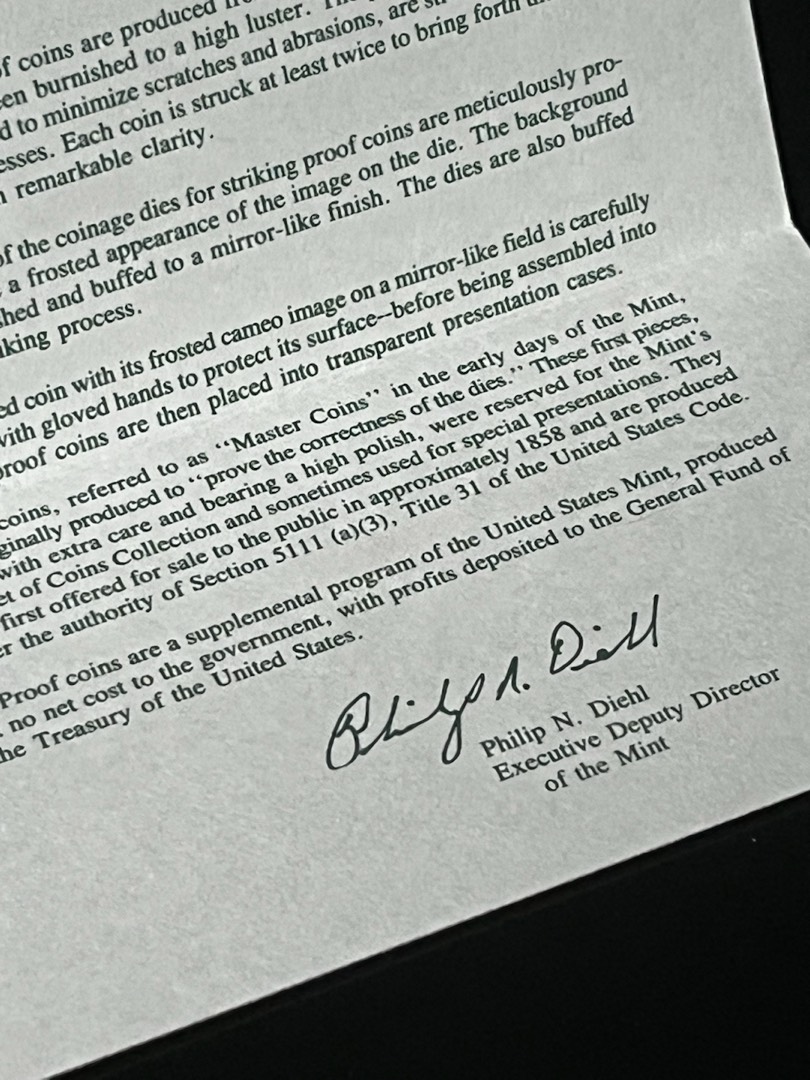 of coins are produced
een burnished to a high luster.
d to minimize scratches and abrasions, are
esses. Each coin is struck at least twice to bring forth
remarkable clarity.
of the coinage dies for striking proof coins are meticulously pro-
a frosted appearance of the image on the die. The background
hed and buffed to a mirror-like finish. The dies are also buffed
iking process.
ed coin with its frosted cameo image on a mirror-like field is carefully
with gloved hands to protect its surface--before being assembled into
proof coins are then placed into transparent presentation cases.
coins, referred to as "Master Coins" in the early days of the Mint,
ginally produced to "prove the correctness of the dies." These first pieces,
with extra care and bearing a high polish, were reserved for the Mint's
et of Coins Collection and sometimes used for special presentations. They
first offered for sale to the public in approximately 1858 and are produced
er the authority of Section 5111 (a)(3), Title 31 of the United States Code.
Proof coins are a supplemental program of the United States Mint, produced
no net cost to the government, with profits deposited to the General Fund of
he Treasury of the United States.
Philip N. Diehl
Philip N. Diehl
Executive Deputy Director
of the Mint